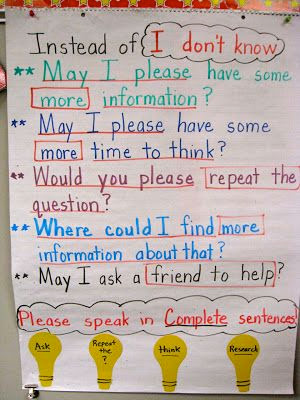 Instead of I don't know
** May I please have some
more information?
** May I please have some
more time to think?
** Would you please repeat the
question?
** Where could I find more
information about that?
** May I ask a friend to help?
Please speak in Complete sentences!
Ask
Repeat the ?
think
Research